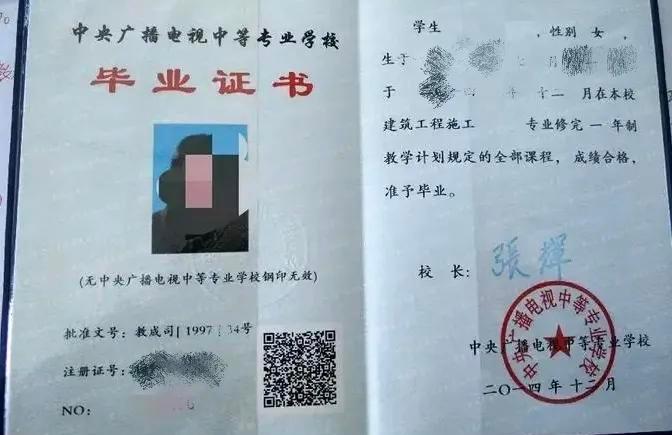 中央广播电视中等专业学校
毕业证书
(无中央广播电视中等专业学校钢印无效)
批准文号：教成司[1997]34号
注册证号：
NO：
学生 ，性别 女，
生于 月
于 年 十二 月在本校
建筑工程施工 专业修完 一 年制
教学计划规定的全部课程，成绩合格，
准予毕业。
校 长：張輝
中央广播电视中等专业学校
中央广播电视中等专业学校
二〇一四年十二月